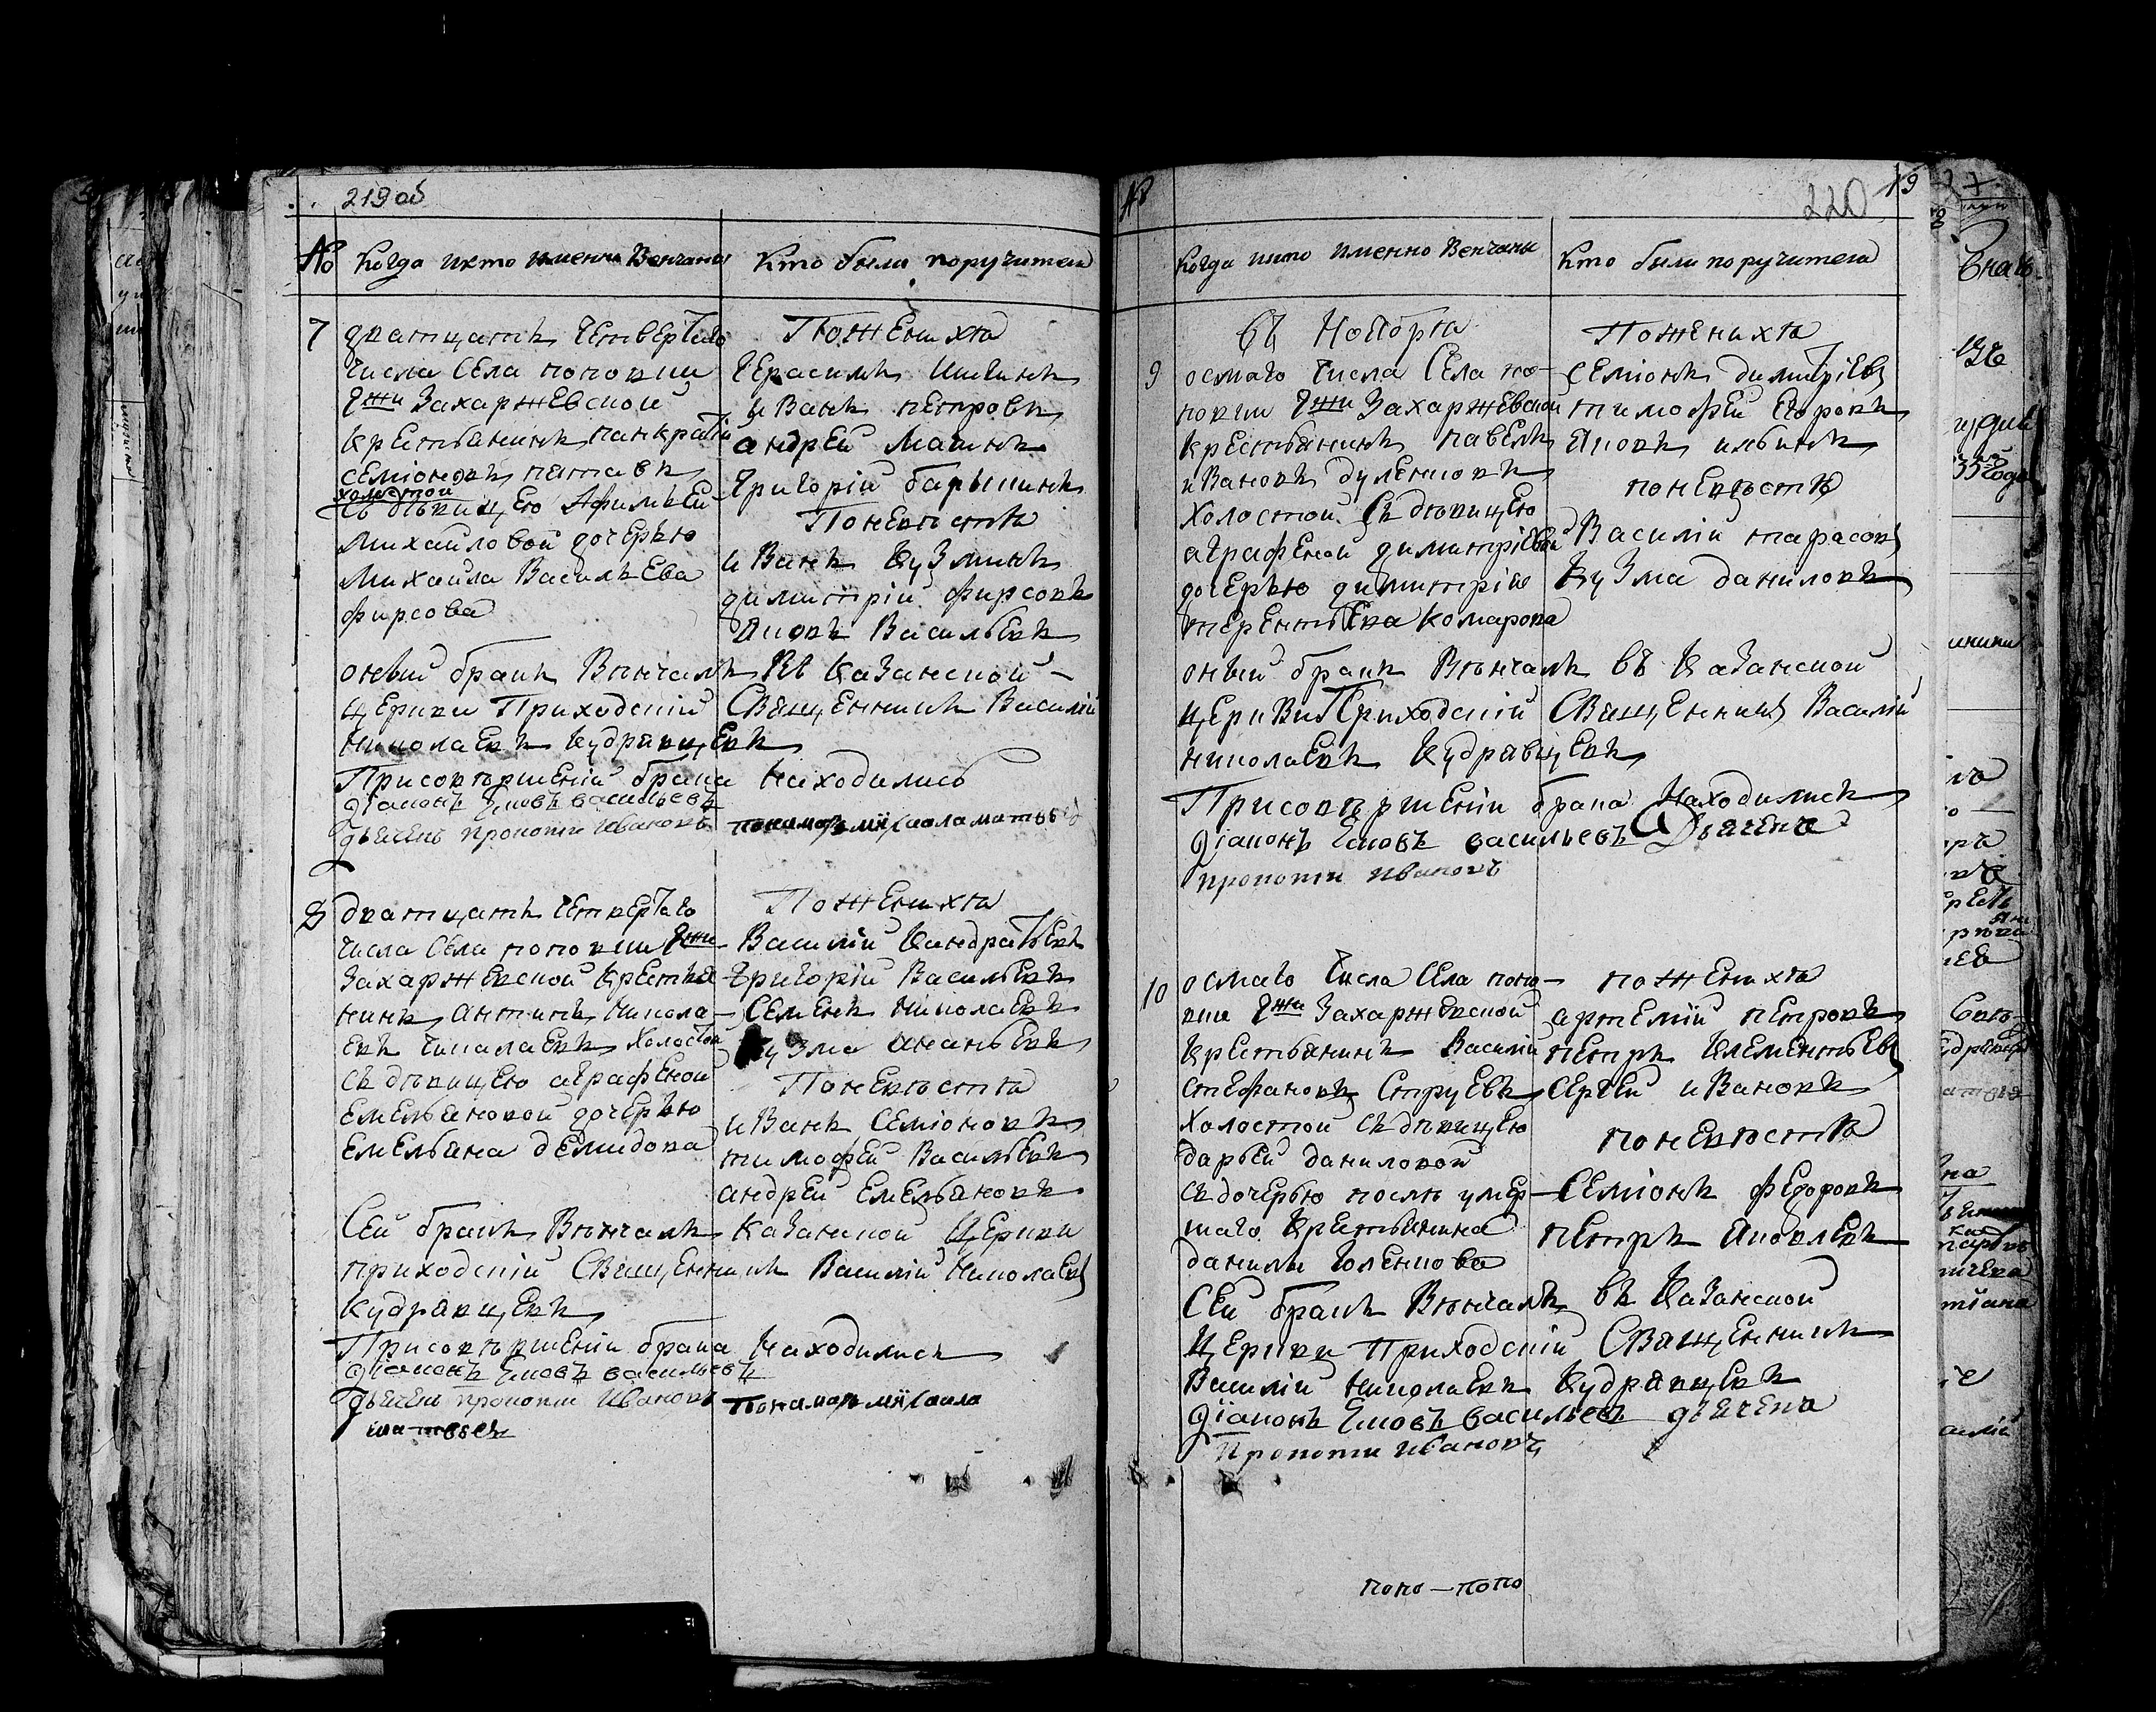 219 об
№ Когда икто именно Венчаны
Кто были поручители
7 дватцать четвертаго
числа Села поповки
Гжи Захаржевской
крестьянинъ панкратй
семіоновъ
холостой
съ девицею Афимьей
Михайловой дочерью
Михайла Васильева
фирсова
Поженихѣ
Герасимъ
иванъ петровъ
андрей
Григорій барышинъ
Поневѣстѣ
иванъ Кузминъ
димитрій фирсовъ
Яковъ Васильевъ
оный бракъ Вѣнчалъ Въ Казанской
церкви Приходскій Священникъ Василій
николаевъ Кудрявцевъ
Присовѣршеніи брака находились
діаконъ Яковъ васильевъ
дьячекъ прокопи Ивановъ пономарь міхаила
8 дватцать четвертаго
числа Села поповки Гжи
Захаржевской крестья
нинъ антипъ никола
евъ холостой
съ девицею аграфеной
Емельяновой дочерью
Емельяна демидова
Поженихѣ
Василій Кандратьевъ
Григорій Васильевъ
Семенъ николаевъ
Кузма ананьевъ
Поневѣстѣ
иванъ Семіоновъ
тимофей Васильевъ
андрей Емельяновъ
Сей бракъ Вѣнчалъ Казанской Церкви
приходскій Священникъ Василій николаевъ
Кудрявцевъ
Присовѣршеніи брака находились
діаконъ Яковъ васильевъ
дьячекъ прокопи Ивановъ пономарь міхаила
матвеевъ
220 19
Когда икто именно Венчаны
Кто были поручители
въ Ноября
9 осмаго числа Села по
повки Гжи Захаржевской
крестьянинъ павелъ
ивановъ
холостой Съ девицею
аграфеной димитріевой
дочерью димитрія
терентьева комарова
Поженихѣ
Семіонъ димитріевъ
тимофей Егоровъ
Яковъ ильинъ
поневѣстѣ
Василій тарасовъ
Кузма даниловъ
оный бракъ Вѣнчалъ въ Казанской
церкви Приходскій Священникъ Василій
николаевъ Кудрявцевъ
Присовѣршеніи брака находились
діаконъ Яковъ васильевъ Дьячекъ
прокопи Ивановъ
10 осмаго числа Села попо
вки Гжи Захаржевской
крестьянинъ Василій
стефановъ Струевъ
холостой съ девицею
дарьей даниловой
съ дочерью после умер
шаго крестьянина
данилы
поженихѣ
артемій петровъ
петръ Клементьевъ
Сергей ивановъ
поневѣстѣ
Семіонъ федоровъ
петръ Яковлевъ
Сей бракъ Вѣнчалъ въ Казанской
Церкви Приходскій Священникъ
Василій николаевъ Кудрявцевъ
діаконъ Яковъ васильевъ дьячекъ
Прокопи ивановъ
попо—попо